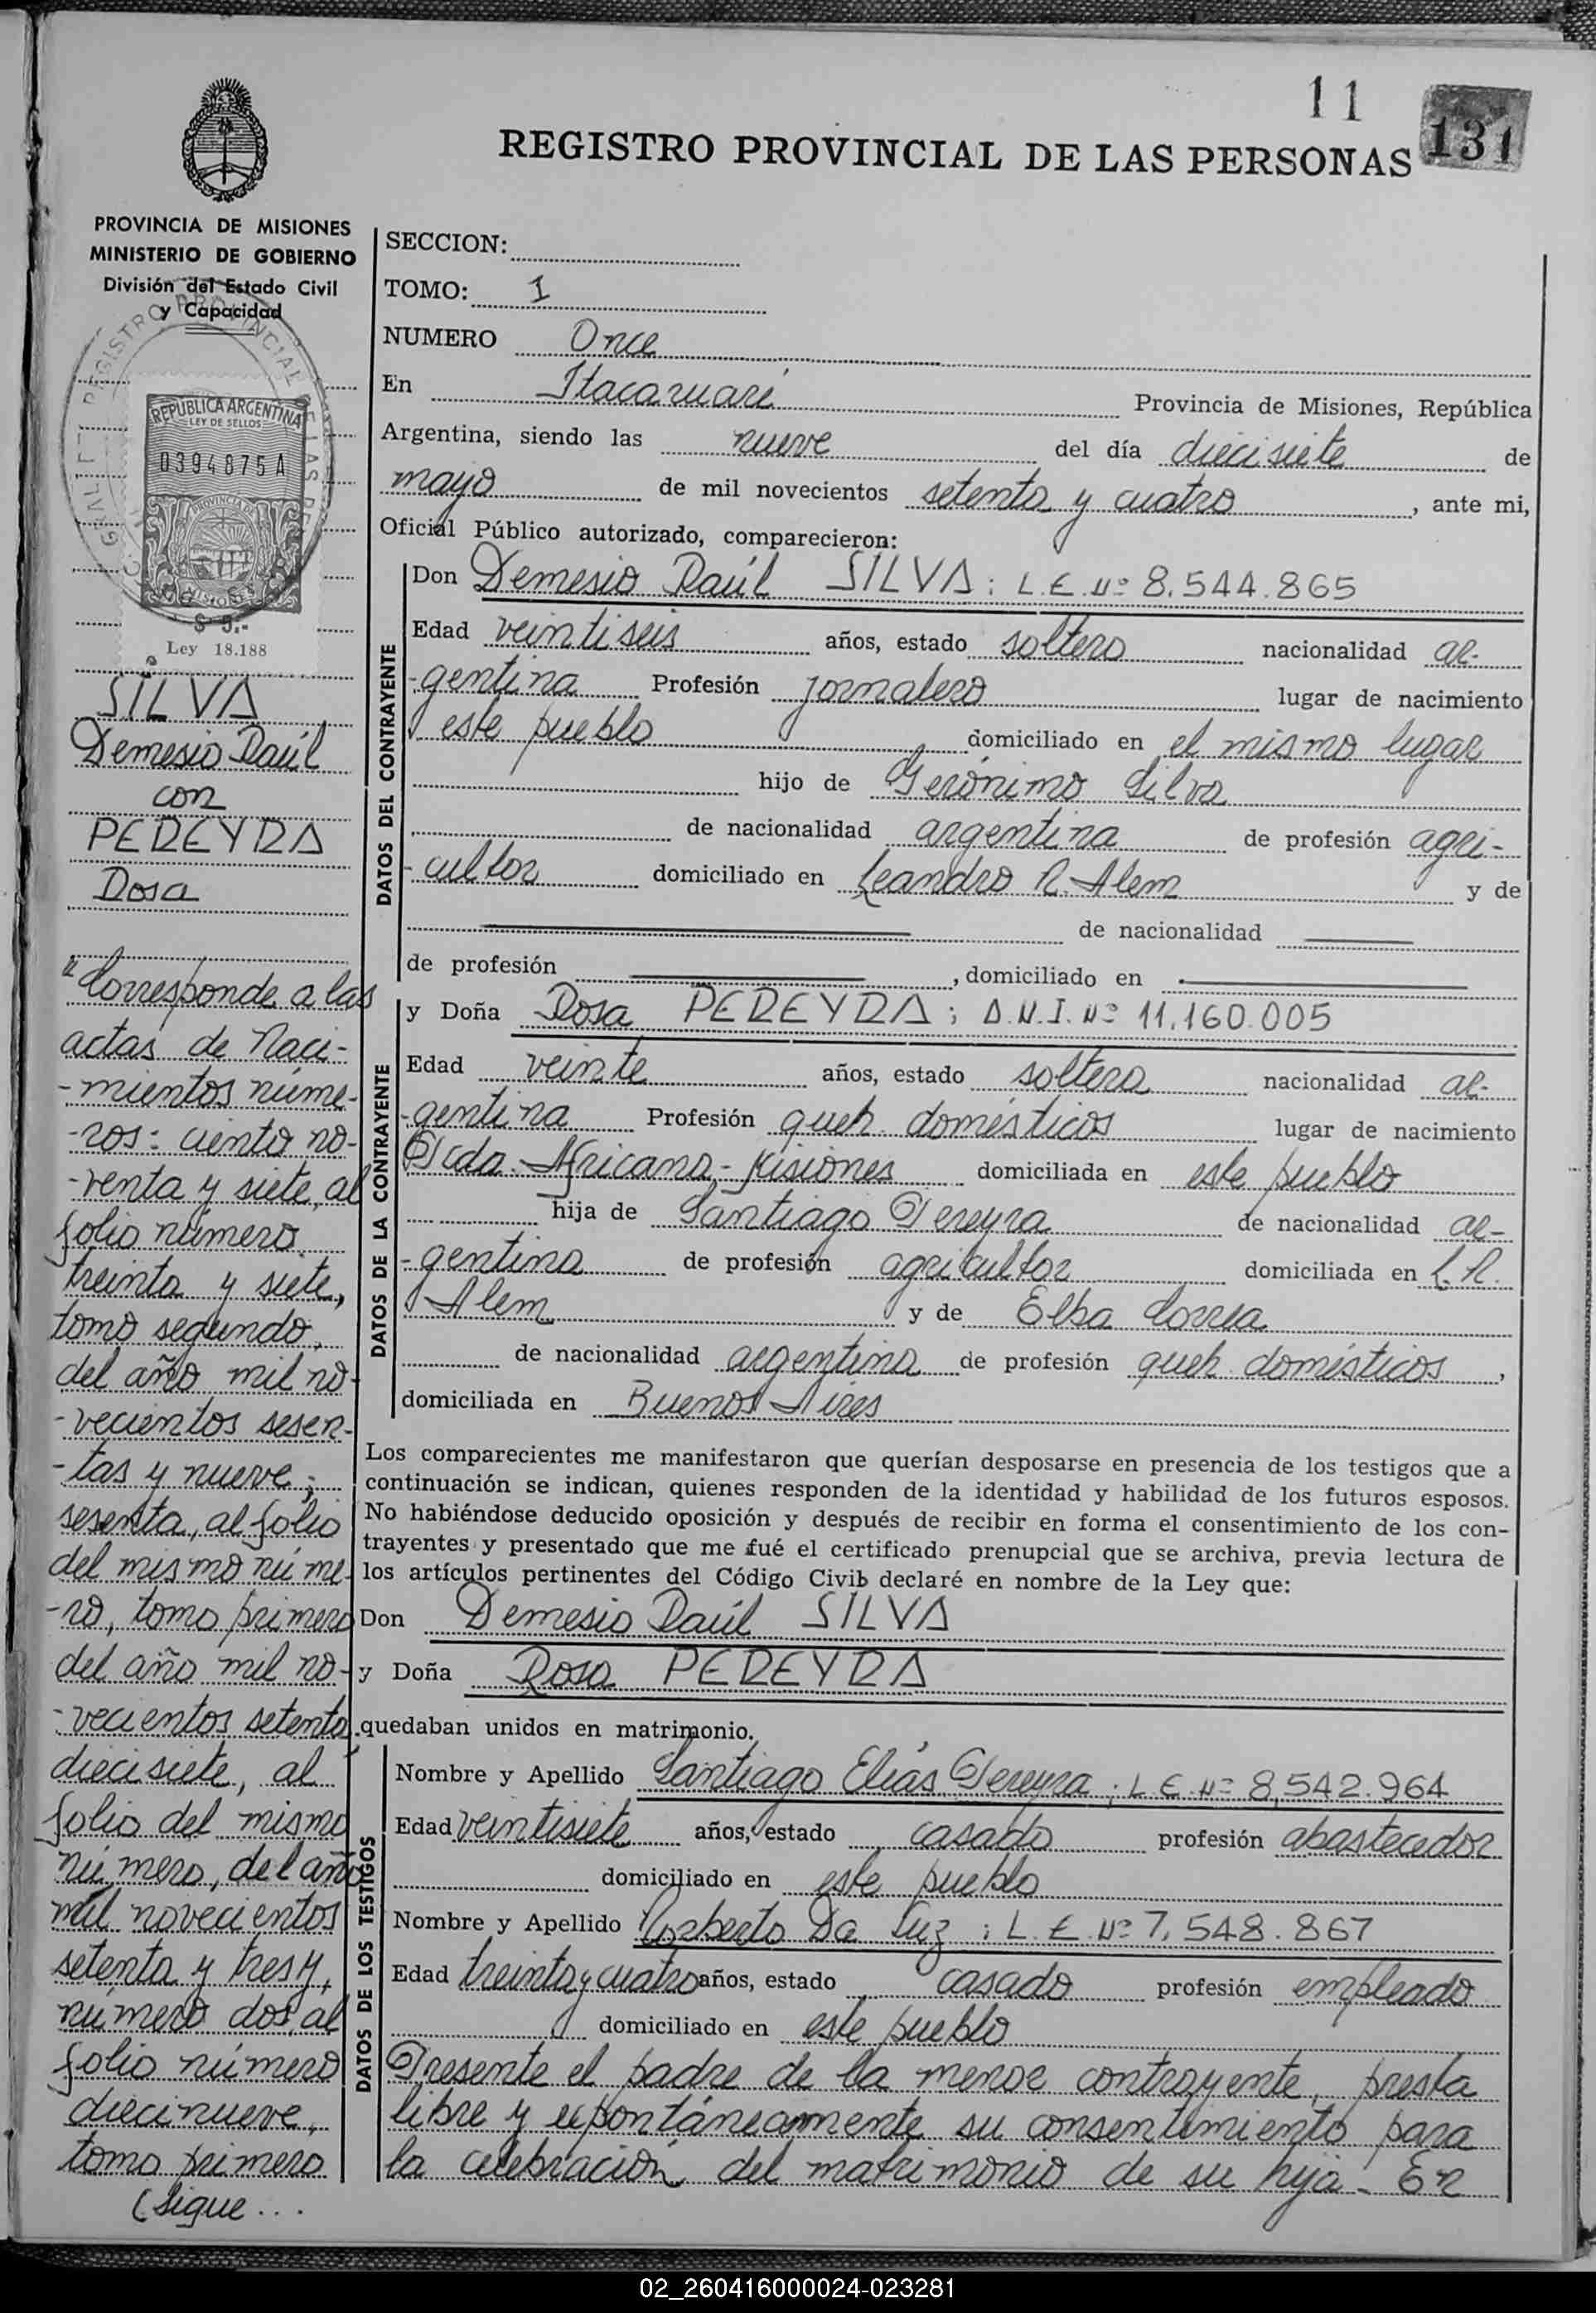 11
131
REGISTRO PROVINCIAL DE LAS PERSONAS
PROVINCIA DE MISIONES
MINISTERIO DE GOBIERNO
División del Estado Civil
y Capacidad
REGISTRO PROVINCIAL DE LAS
REPUBLICA ARGENTINA
LEY DE SELLOS
0394875A
PROVINCIA DE
MISIONES
$ 5.-
Ley 18.188
SILVA
Demesio Raúl
con
PEREYRA
Rosa
"Corresponde a las
actas de Naci-
-mientos núme-
-ros: ciento no-
-venta y siete, al
folio número
treinta y siete,
tomo segundo,
del año mil no-
-vecientos sesen-
-tas y nueve;
sesenta, al folio
del mismo núme-
-ro, tomo primero
del año mil no-
-vecientos setenta,
diecisiete, al
folio del mismo
número, del año
mil novecientos
setenta y tres y,
número dos, al
folio número
diecinueve,
tomo primero
(Sigue...
SECCION:
TOMO: I
NUMERO Once
En Itacaruaré Provincia de Misiones, República
Argentina, siendo las nueve del día diecisiete de
mayo de mil novecientos setenta y cuatro, ante mi,
Oficial Público autorizado, comparecieron:
DATOS DEL CONTRAYENTE
Don Demesio Raúl SILVA: L.E. Nº 8.544.865
Edad veintiseis años, estado soltero nacionalidad ar-
-gentina Profesión jornalero lugar de nacimiento
este pueblo domiciliado en el mismo lugar
hijo de Gerónimo Silva
de nacionalidad argentina de profesión agri-
-cultor domiciliado en Leandro N. Alem y de
de nacionalidad
de profesión , domiciliado en
DATOS DE LA CONTRAYENTE
y Doña Rosa PEREYRA; D.N.I. Nº 11.160.005
Edad veinte años, estado soltera nacionalidad ar-
-gentina Profesión queh. domésticos lugar de nacimiento
Pcda. Africana-Misiones domiciliada en este pueblo
hija de Santiago Pereyra de nacionalidad ar-
-gentina de profesión agricultor domiciliada en L.N.
Alem y de Elba Correa
de nacionalidad argentina de profesión queh. domésticos,
domiciliada en Buenos Aires
Los comparecientes me manifestaron que querían desposarse en presencia de los testigos que a
continuación se indican, quienes responden de la identidad y habilidad de los futuros esposos.
No habiéndose deducido oposición y después de recibir en forma el consentimiento de los con-
trayentes y presentado que me fué el certificado prenupcial que se archiva, previa lectura de
los artículos pertinentes del Código Civil declaré en nombre de la Ley que:
Don Demesio Raúl SILVA
y Doña Rosa PEREYRA
quedaban unidos en matrimonio.
DATOS DE LOS TESTIGOS
Nombre y Apellido Santiago Elías Pereyra; L.E. Nº 8.542.964
Edad veintisiete años, estado casado profesión abastecedor
domiciliado en este pueblo
Nombre y Apellido Norberto Da Luz; L.E. Nº 7.548.867
Edad treinta y cuatro años, estado casado profesión empleado
domiciliado en este pueblo
Presente el padre de la menor contrayente, presta
libre y expontáneamente su consentimiento para
la celebración del matrimonio de su hija- En
02_260416000024-023281